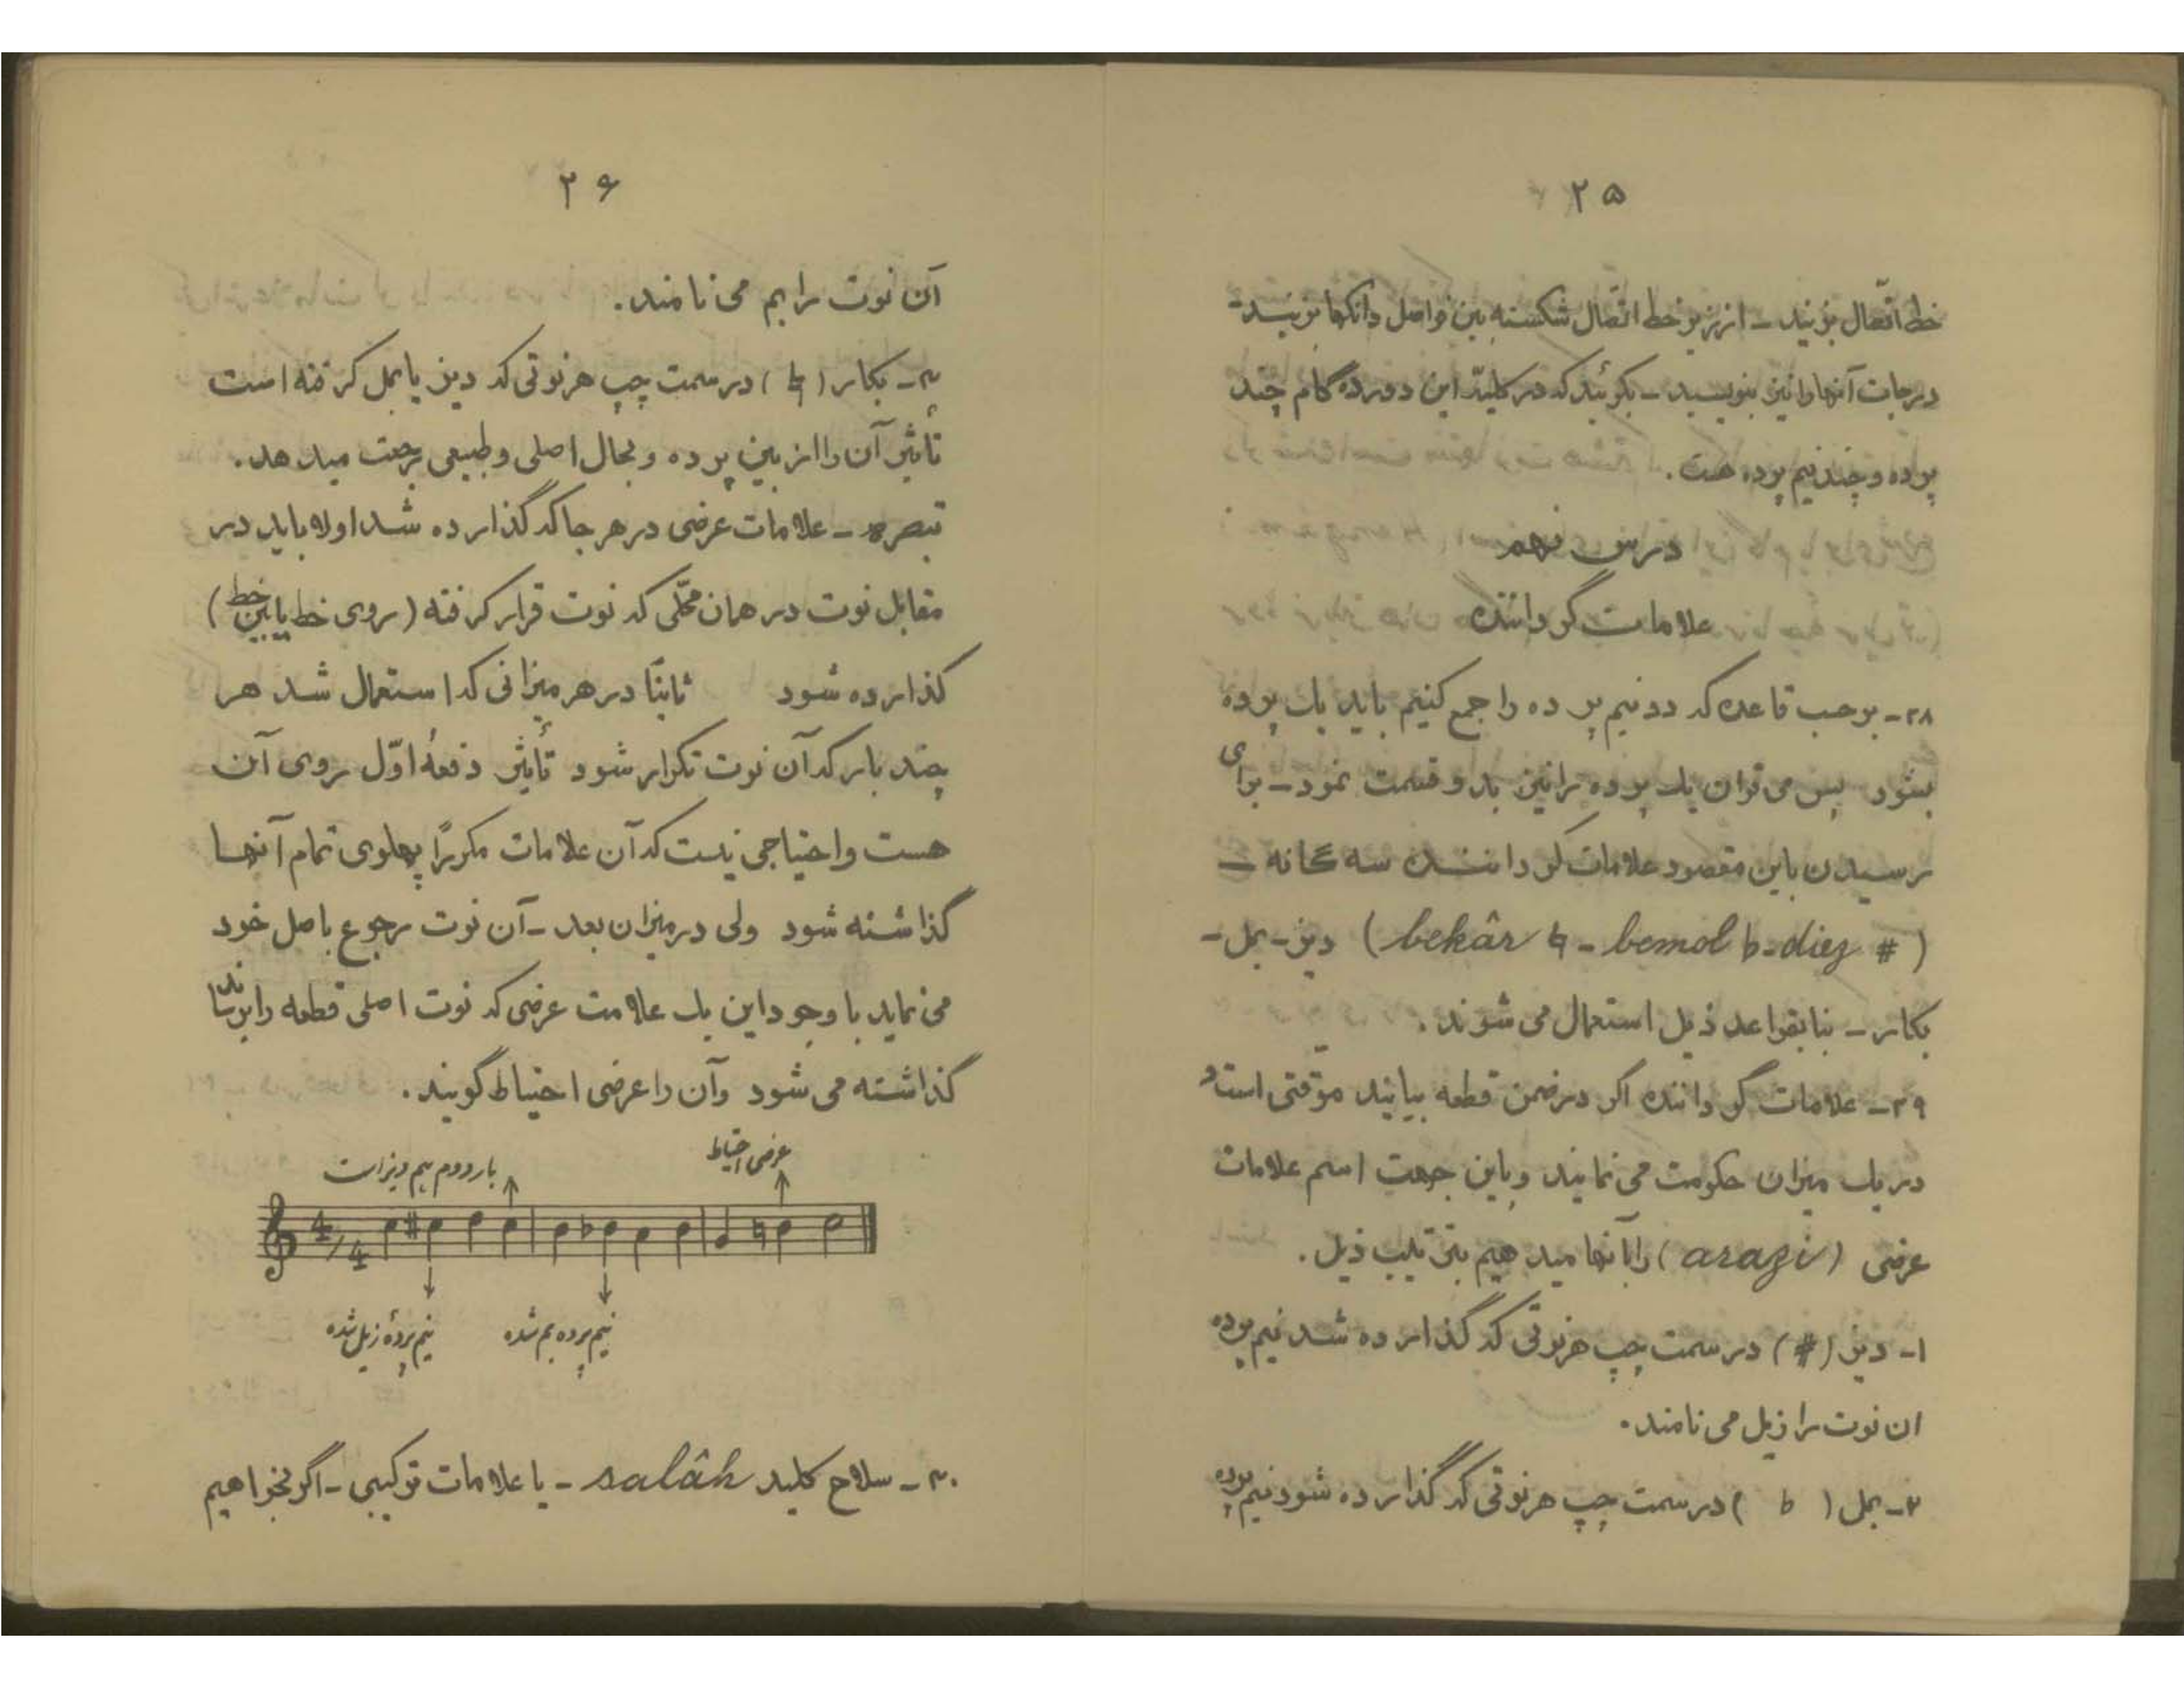 ۲۵
خط اتّصال بزنید - از زیر خط اتصال شکسته بین فواصل دانگها بزنید -
درجات آنها را نیز بنویسید - بگوئید که در کلیّهٔ این دوره گام چند
پرده و چند نیم پرده هست .
درس نهم
علامات گرداننده
۲۸ - برحسب قاعده که دو نیم پرده را جمع کنیم باید یک پرده
بشود پس می توان یک پرده را نیز بدو قسمت نمود - برای
رسیدن باین مقصود علامات گرداننده سه گانه -
( bekâr ♮ - bemol b - diez # ) دیز - بمل -
بکار - بنا بقواعد ذیل استعمال می شوند .
۲۹ - علامات گرداننده اگر در ضمن قطعه بیایند موقتی است و
در یک میزان حکومت می نمایند و باین جهت اسم علامات
عرضی ( arazi ) را بآنها میدهیم بترتیب ذیل .
۱ - دیز ( # ) در سمت چپ هر نوتی که گذارده شد نیم پرده
ان نوت را زیل می نامند .
۲ - بمل ( b ) در سمت چپ هر نوتی که گذارده شود نیم پرده
۲۶
آن نوت را بم می نامند .
۳ - بکار ( ♮ ) در سمت چپ هر نوتی که دیز یا بمل گرفته است
تأثیر آن را از بین برده و بحال اصلی و طبیعی رجعت میدهد .
تبصره - علامات عرضی در هر جا که گذارده شد اولا باید در
مقابل نوت در همان محلّی که نوت قرار گرفته ( روی خط یا بین خط )
گذارده شود ثانیاً در هر میزانی که استعمال شد هر
چند بار که آن نوت تکرار شود تأثیر دفعهٔ اوّل روی آن
هست و احتیاجی نیست که آن علامات مکرراً پهلوی تمام آنها
گذاشته شود ولی در میزان بعد - آن نوت رجوع باصل خود
می نماید با وجود این یک علامت عرضی که نوت اصلی قطعه را برساند
گذاشته می شود وآن را عرضی احتیاط گویند .
عرضی احتیاط
بار دوم هم دیز است
4/4
نیم پرده بم شده
نیم پردهٔ زیل شده
۳۰ - سلاح کلید salâh - یا علامات ترکیبی - اگر بخواهیم